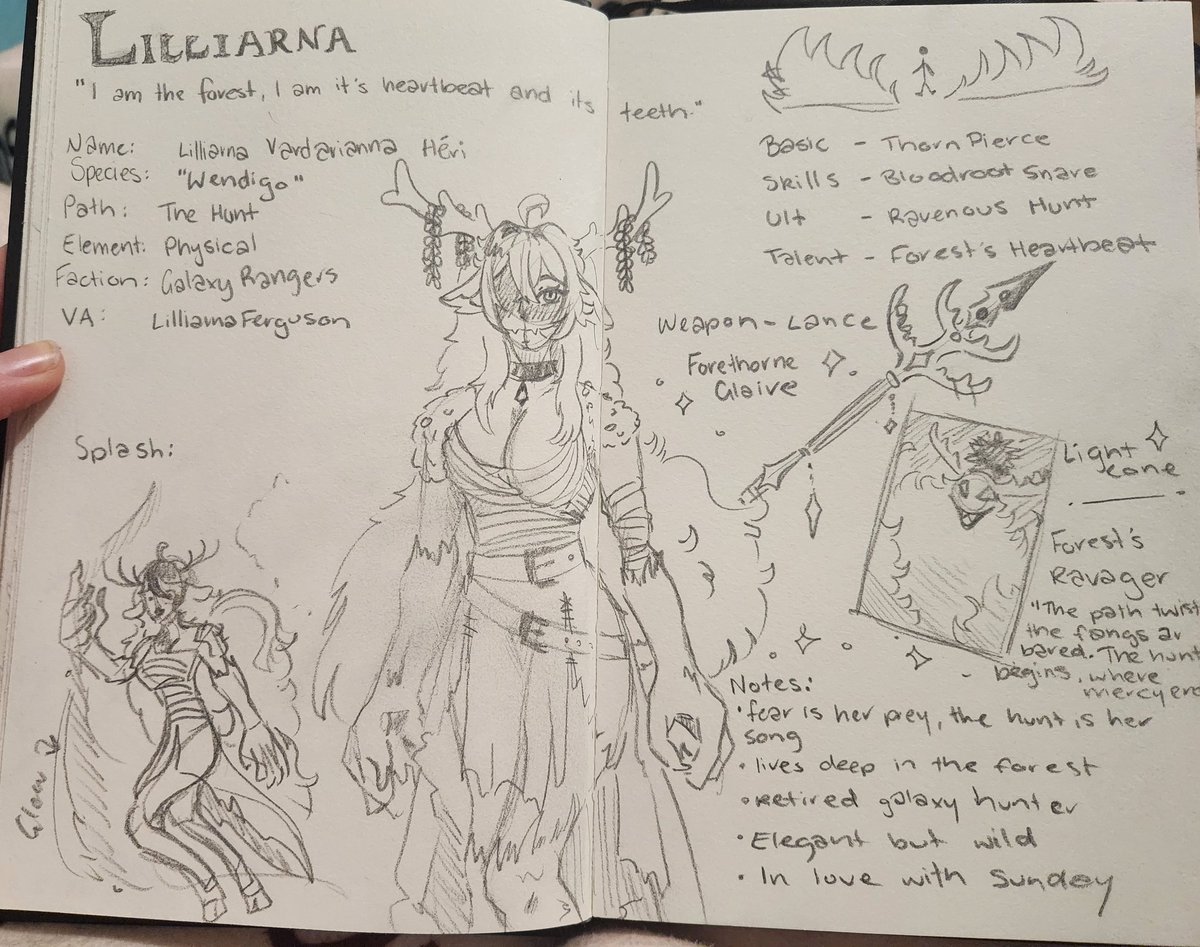 LILLIARNA
"I am the forest, I am it's heartbeat and its teeth."
Name: Lilliarna Vardarianna Héri
Species: "Wendigo"
Path: The Hunt
Element: Physical
Faction: Galaxy Rangers
VA: Lilliarna Ferguson
Splash:
Glow
Basic - Thorn Pierce
Skills - Bloodroot Snare
Ult - Ravenous Hunt
Talent - Forest's Heartbeat
Weapon - Lance
Forethorne
Glaive
Light
cone
Forest's
Ravager
"The path twist
the fangs ar
bared. The hunt
begins, where
mercy en
Notes:
• fear is her prey, the hunt is her
song
• lives deep in the forest
• Retired galaxy hunter
• Elegant but wild
• In love with Sunday